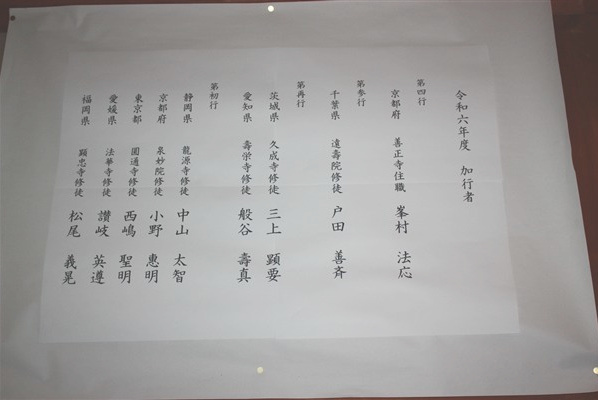 令和六年度 加行者
第四行
京都府 善正寺住職 峯村 法応
第参行
千葉県 遠壽院修徒 戸田 善斉
第再行
茨城県 久成寺修徒 三上 顕要
愛知県 壽栄寺修徒 般谷 壽真
第初行
静岡県 龍源寺修徒 中山 太智
京都府 泉妙院修徒 小野 恵明
東京都 圓通寺修徒 西嶋 聖明
愛媛県 法華寺修徒 讃岐 英遵
福岡県 顕忠寺修徒 松尾 義晃